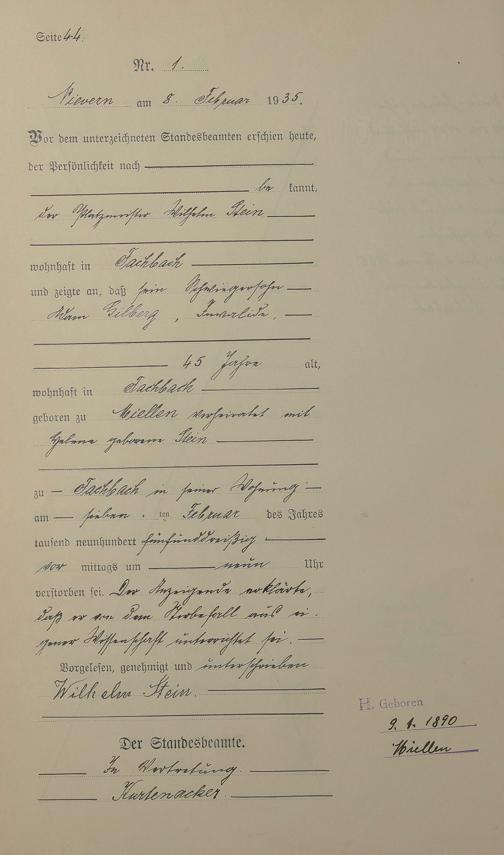 Seite 44.
Nr. 1.
Nievern am 8. Februar 1935.
Vor dem unterzeichneten Standesbeamten erschien heute,
der Persönlichkeit nach
be kannt,
der Platzmeister Wilhelm Stein
wohnhaft in Fachbach
und zeigte an, daß sein Schwiegersohn
Adam Gilberg, Invalide,
45 Jahre alt,
wohnhaft in Fachbach
geboren zu Miellen verheiratet mit
Helene geborene Stein
zu Fachbach in seiner Wohnung
am sieben ten Februar des Jahres
tausend neunhundert fünfunddreißig
vor mittags um neun Uhr
verstorben sei. Der Anzeigende erklärte,
daß er von dem Sterbefall aus ei-
gener Wissenschaft unterrichtet sei.
Vorgelesen, genehmigt und unterschrieben
Wilhelm Stein.
Der Standesbeamte.
In Vertretung.
Kurtenacker.
H. Geboren
9. 1. 1890
Miellen